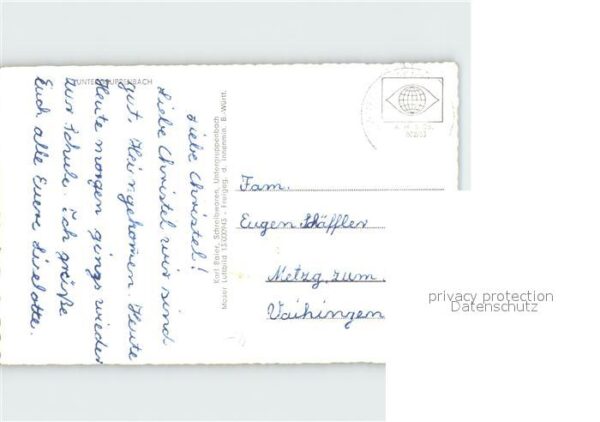 UNTERGRUPPENBACH
Liebe Christel!
Liebe Christel wir sind
gut. Heimgekommen. Heute
Heute morgen gings wieder
zur Schule. Ich grüße
Euch alle Euere Liselotte.
Karl Baier, Schreibwaren, Untergruppenbach
Moser Luftbild - Freigeg. d. Innenmin. B.-Württ.
Fam.
Eugen Schäffler
Metzg. zum
Vaihingen
privacy protection
Datenschutz